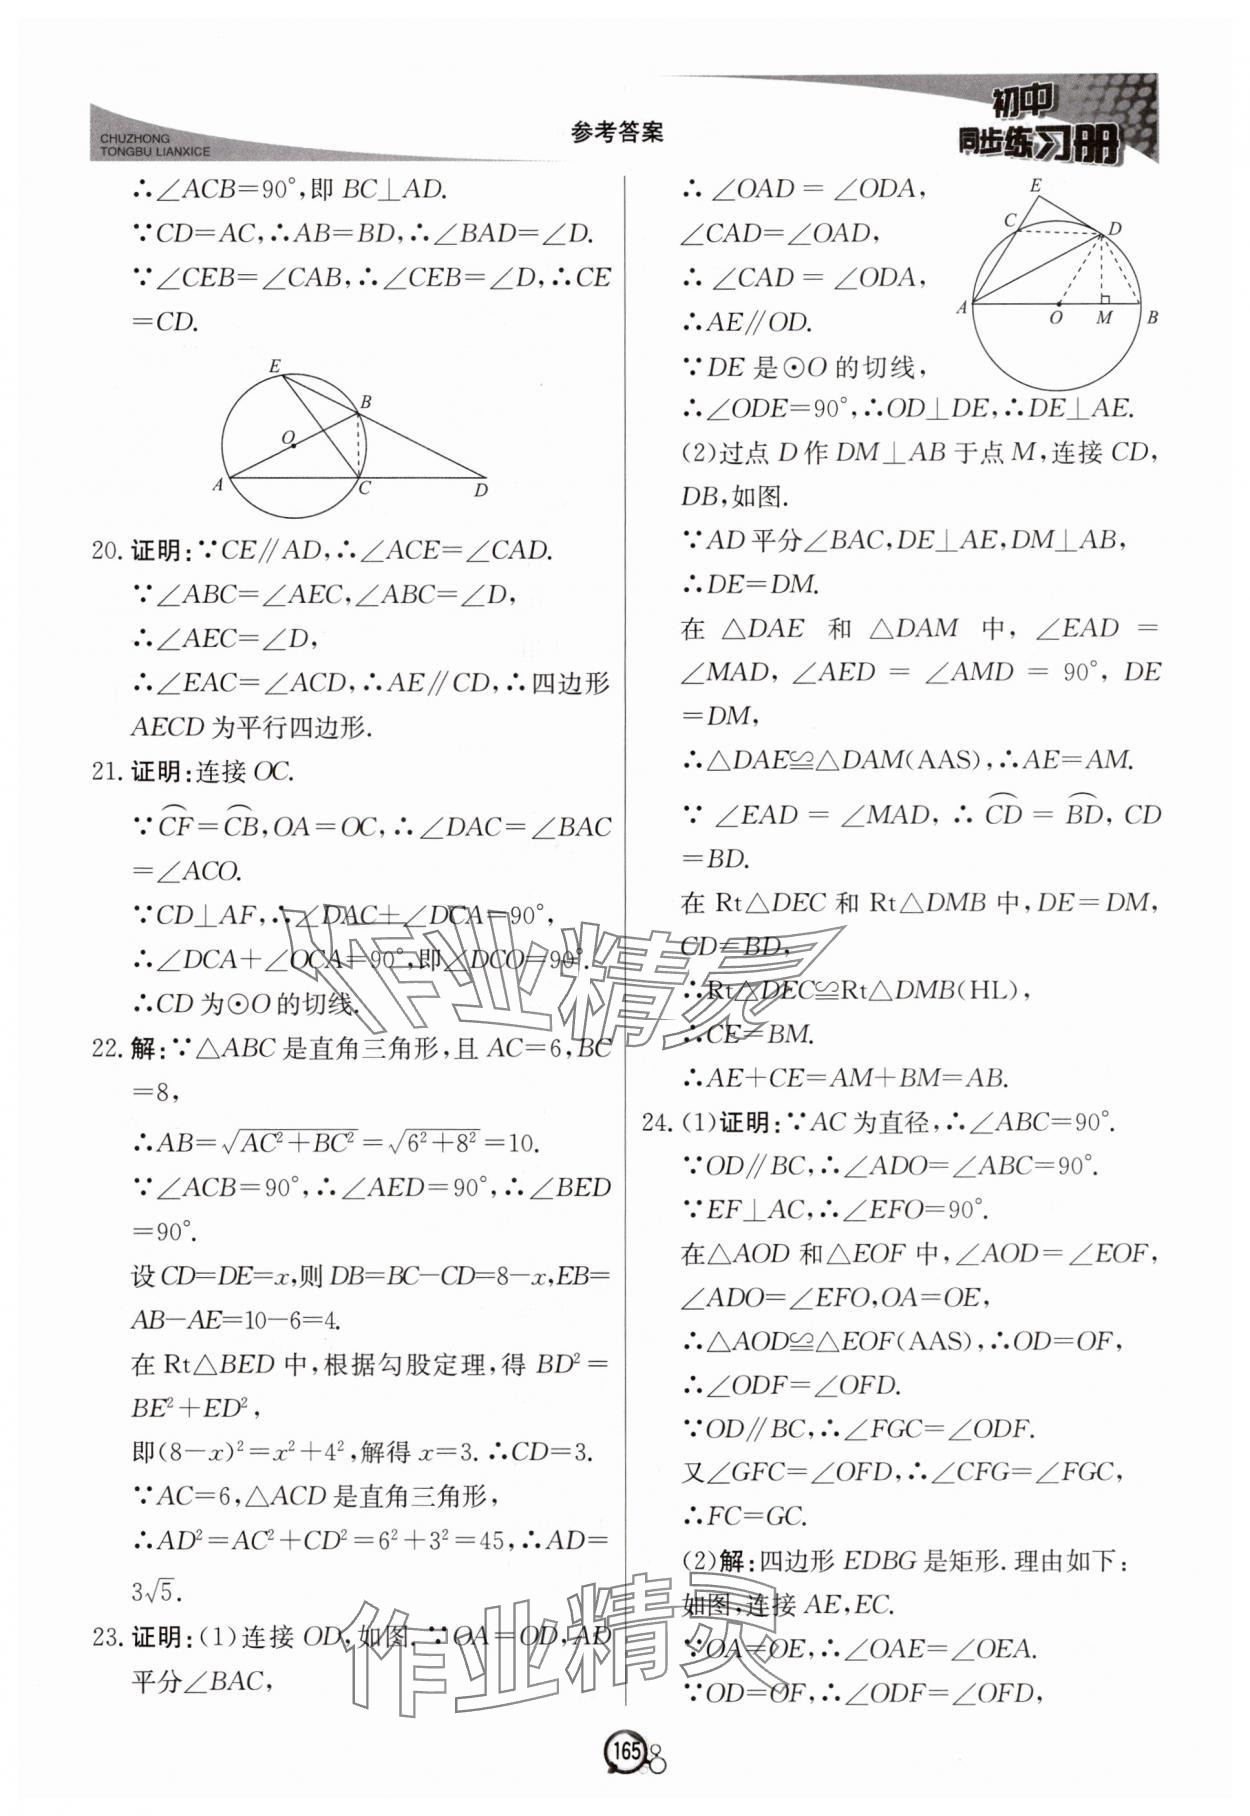 CHUZHONG
TONGBU LIANXICE
参考答案
初中
同步练习册
∴∠ACB=90°,即 BC⊥AD.
∵CD=AC,∴AB=BD,∴∠BAD=∠D.
∵∠CEB=∠CAB,∴∠CEB=∠D,∴CE
=CD.
E
B
O
A
C
D
20. 证明:∵CE∥AD,∴∠ACE=∠CAD.
∵∠ABC=∠AEC,∠ABC=∠D,
∴∠AEC=∠D,
∴∠EAC=∠ACD,∴AE∥CD,∴四边形
AECD 为平行四边形.
21. 证明:连接 OC.
∵⌒CF=⌒CB,OA=OC,∴∠DAC=∠BAC
=∠ACO.
∵CD⊥AF,∴∠DAC+∠DCA=90°,
∴∠DCA+∠OCA=90°,即∠DCO=90°.
∴CD 为⊙O 的切线.
22. 解:∵△ABC 是直角三角形,且 AC=6,BC
=8,
∴AB=√(AC²+BC²)=√(6²+8²)=10.
∵∠ACB=90°,∴∠AED=90°,∴∠BED
=90°.
设 CD=DE=x,则 DB=BC−CD=8−x,EB=
AB−AE=10−6=4.
在 Rt△BED 中,根据勾股定理,得 BD²=
BE²+ED²,
即(8−x)²=x²+4²,解得 x=3. ∴CD=3.
∵AC=6,△ACD 是直角三角形,
∴AD²=AC²+CD²=6²+3²=45,∴AD=
3√5.
23. 证明:(1)连接 OD,如图. ∵OA=OD,AD
平分∠BAC,
∴∠OAD=∠ODA,
∠CAD=∠OAD,
∴∠CAD=∠ODA,
∴AE∥OD.
∵DE 是⊙O 的切线,
E
C
D
A
O
M
B
∴∠ODE=90°,∴OD⊥DE,∴DE⊥AE.
(2)过点 D 作 DM⊥AB 于点 M,连接 CD,
DB,如图.
∵AD 平分∠BAC,DE⊥AE,DM⊥AB,
∴DE=DM.
在 △DAE 和 △DAM 中,∠EAD=
∠MAD,∠AED=∠AMD=90°,DE
=DM,
∴△DAE≌△DAM(AAS),∴AE=AM.
∵∠EAD=∠MAD,∴⌒CD=⌒BD,CD
=BD.
在 Rt△DEC 和 Rt△DMB 中,DE=DM,
CD=BD,
∴Rt△DEC≌Rt△DMB(HL),
∴CE=BM.
∴AE+CE=AM+BM=AB.
24. (1)证明:∵AC 为直径,∴∠ABC=90°.
∵OD∥BC,∴∠ADO=∠ABC=90°.
∵EF⊥AC,∴∠EFO=90°.
在△AOD 和△EOF 中,∠AOD=∠EOF,
∠ADO=∠EFO,OA=OE,
∴△AOD≌△EOF(AAS),∴OD=OF,
∴∠ODF=∠OFD.
∵OD∥BC,∴∠FGC=∠ODF.
又∠GFC=∠OFD,∴∠CFG=∠FGC,
∴FC=GC.
(2)解:四边形 EDBG 是矩形. 理由如下:
如图,连接 AE,EC.
∵OA=OE,∴∠OAE=∠OEA.
∵OD=OF,∴∠ODF=∠OFD,
作业精灵
作业精灵
165